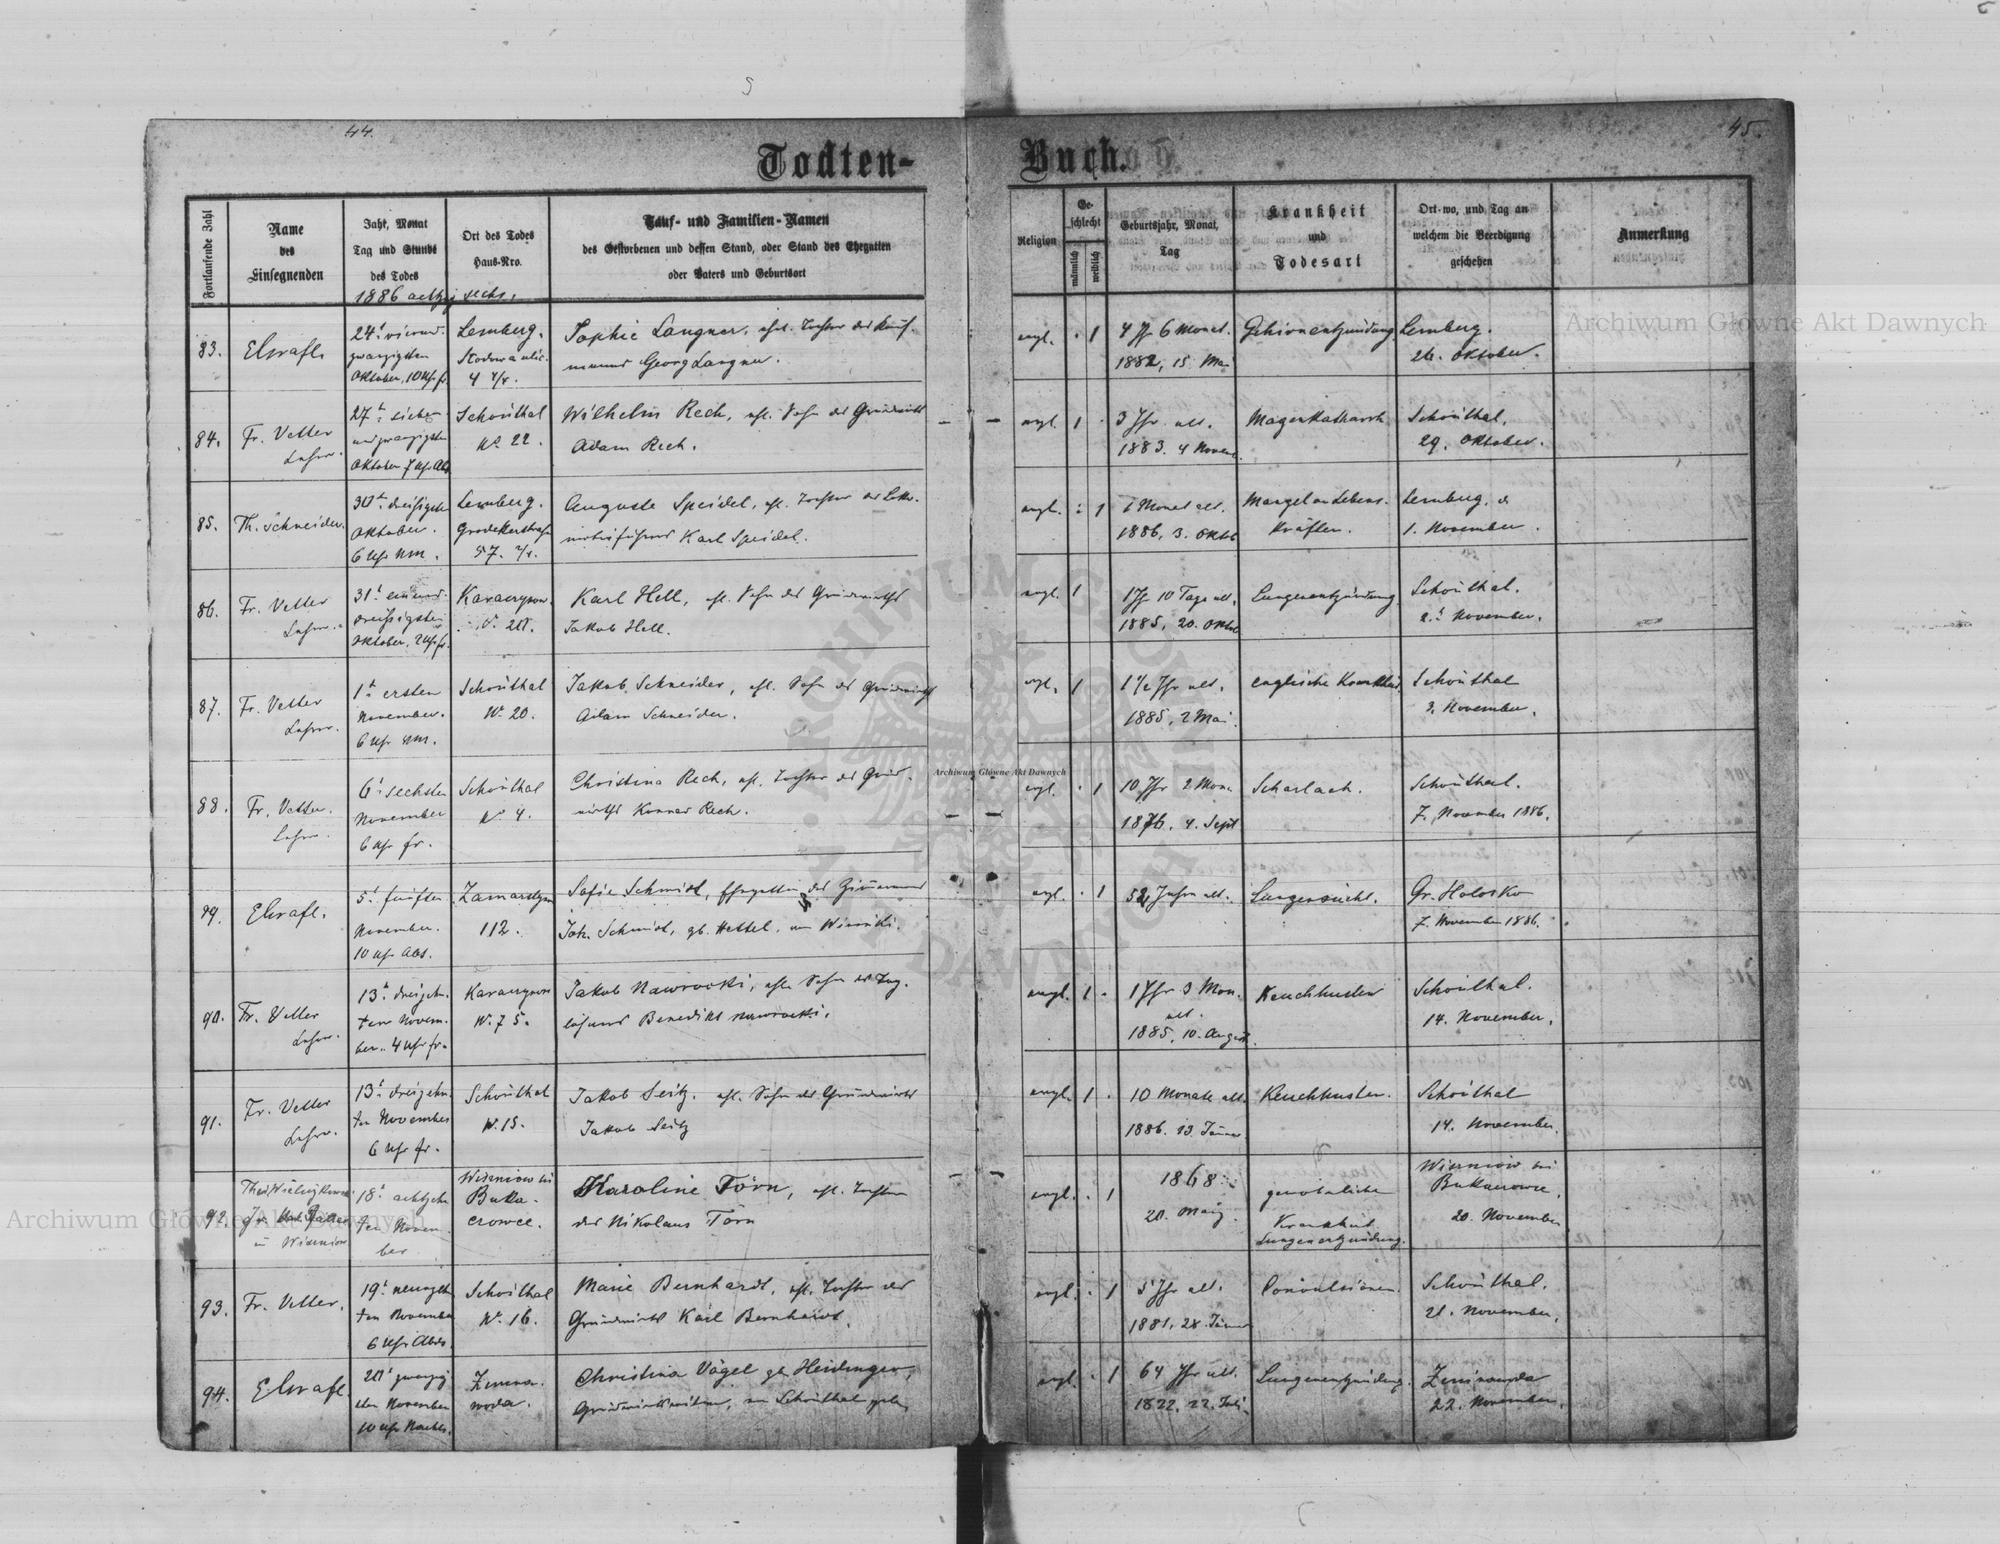 44.
45.
Todten-
Buch.
Fortlaufende Zahl
Name
des
Einsegnenden
Jahr, Monat
Tag und Stunde
des Todes
Ort des Todes
Haus-Nro.
Tauf- und Familien-Namen
des Gestorbenen und dessen Stand, oder Stand des Ehegatten
oder Vaters und Geburtsort
Religion
Ge-
schlecht
männlich
weiblich
Geburtsjahr, Monat,
Tag
Krankheit
und
Todesart
Ort wo, und Tag an
welchem die Beerdigung
geschehen
Anmerkung
1886 achtzig sechs.
83.
24t vierund-
zwanzigsten
Oktober, 10 Uhr fr.
Lemberg.
4 1/4.
Sophie Langner, ehl. Tochter des Kauf-
manns Georg Langner.
evgl. · 1
4 Jhr 6 Monat.
1882, 15. Mai
Gehirnentzündung
Lemberg.
26. Oktober.
84.
Fr. Vetter
Lehrer.
27t sieben
undzwanzigsten
Oktober 7 Uhr Abd
Schönthal
No 22.
Wilhelm Rech, ehl. Sohn des Grundwirths
Adam Rech.
evgl. 1 ·
3 Jhr alt.
1883. 4 Novem
Magenkatharrh
Schönthal.
29. Oktober.
85.
Th. Schneider.
30t dreißigsten
Oktober.
6 Uhr NM.
Lemberg.
57.
Auguste Speidel, ehl. Tochter des Loko-
motivführers Karl Speidel.
evgl. · 1
Monat alt.
1886, 3. Oktob
Mangel an Lebens-
kräften.
Lemberg, d
1. November.
86.
Fr. Vetter
Lehrer.
31t einund
dreißigsten
Oktober, 2 Uhr fr.
Karaczynow.
Karl Hell, ehl. Sohn des Grundwirths
Jakob Hell.
evgl. 1
1 Jhr 10 Tage alt.
1885, 20. Oktob
Lungenentzündung
Schönthal.
2t November.
87.
Fr. Vetter
Lehrer.
1t ersten
November.
6 Uhr NM.
Schönthal
No 20.
Jakob Schneider, ehl. Sohn des Grundwirths
Adam Schneider.
evgl. 1
1 1/2 Jhr alt.
1885, 2 Mai
englische Krankheit.
Schönthal
3. November.
88.
Fr. Vetter.
Lehrer.
6t sechsten
November
6 Uhr fr.
Schönthal
No 4.
Christina Rech, ehl. Tochter des Grund-
wirths Konrad Rech.
evgl. · 1
10 Jhr 2 Mon.
1876, 4. Sept
Scharlach.
Schönthal.
7. November 1886.
89.
5t fünften
November.
10 Uhr Abs.
Zamarstyn
112.
Sofie Schmidt, Ehegattin des Zimmermanns
Joh. Schmidt, gb. Hettel, aus Winniki.
evgl. · 1
52 Jahre alt.
Lungensucht.
Gr. Holosko
7. November 1886.
90.
Fr. Vetter
Lehrer.
13t dreizehn-
ten Novem-
ber. 4 Uhr fr.
Karaczynow
No 75.
Jakob Nawrocki, ehl. Sohn des Tag-
löhners Benedikt Nawrocki.
evgl. 1 ·
1 Jhr 3 Mon.
alt.
1885, 10. August.
Keuchhusten
Schönthal.
14. November.
91.
Fr. Vetter
Lehrer.
13t dreizehn-
ten November
6 Uhr fr.
Schönthal
No 15.
Jakob Seitz. ehl. Sohn des Grundwirths
Jakob Seitz
evgl. 1 ·
10 Monate alt.
1886. 13. Jänner
Keuchhusten.
Schönthal
14. November.
92.
18t achtzehn
ten Novem-
ber
Wiszniow bei
Buka-
czowce.
Karoline Törn, ehl. Tochter
des Nikolaus Törn
evgl. · 1
1868
20. März
gewöhnliche
Krankheit
Lungenentzündung.
Wiszniow bei
Bukaczowce,
20. November
93.
Fr. Vetter.
19t neunzehn
ten November
6 Uhr Abds.
Schönthal
No 16.
Marie Bernhardt, ehl. Tochter des
Grundwirths Karl Bernhardt.
evgl. · 1
5 Jhr alt.
1881, 28. Jänner
Konvulsionen
Schönthal.
21. November.
94.
20t zwanzig
sten November
10 Uhr Nachts.
Zimna-
woda.
Christina Vögel gb Heidinger,
Grundwirthswittwe, in Schönthal geb.
evgl. · 1
64 Jhr alt.
1822, 22. Juli
Lungenentzündung.
Zimnawoda
22. November.
Archiwum Główne Akt Dawnych
Archiwum Główne Akt Dawnych
Archiwum Główne Akt Dawnych